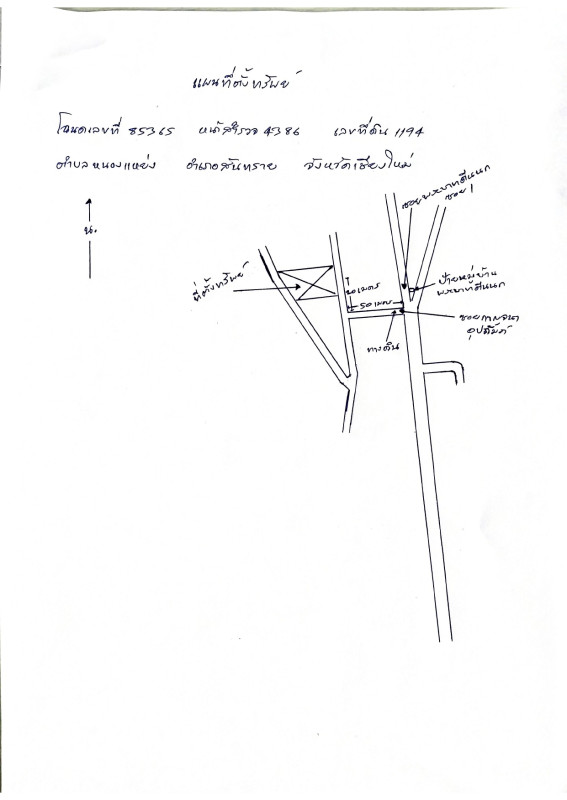 แผนที่ตั้งทรัพย์
โฉนดเลขที่ 85365 หน้าสำรวจ 4386 เลขที่ดิน 1194
ตำบลหนองแหย่ง อำเภอสันทราย จังหวัดเชียงใหม่
น.
ซอยพระบาทตีนนก
ซอย 1
ที่ตั้งทรัพย์
เมตร
50 เมตร
ป้ายหมู่บ้าน
พระบาทตีนนก
ซอยกาญจนา
อุปถัมภ์
ทางดิน